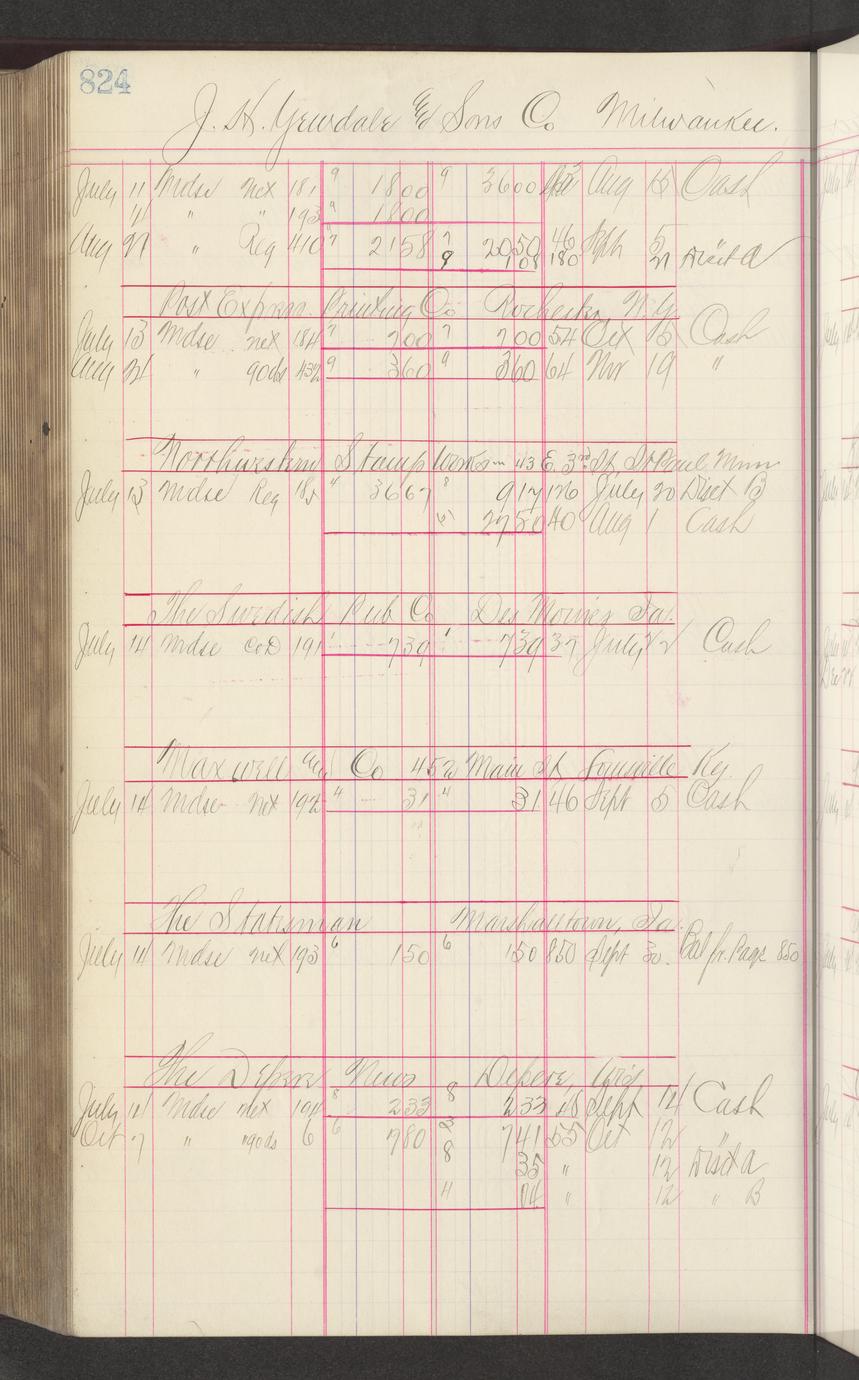 824
J. H. Yewdale & Sons Co Milwaukee.
July 11 Mdse net 181 9 1800 9 3600 Aug 15 Cash
" " 193 9 1800
Aug 27 " Reg 410 7 2158 7 2050 46 Sept 5
9 108 180 21 Disct A
Post Express Printing Co Rochester, N.Y.
July 13 Mdse net 184 7 700 7 700 54 Oct 15 Cash
Aug 21 " 90ds 432 9 360 9 360 64 Nov 19 "
Northwestern Stamp Works 43 E. 3rd St. St Paul Minn
July 13 Mdse Reg 185 4 3667 8 917 126 July 20 Disct B
2750 40 Aug 1 Cash
The Swedish Pub Co Des Moines Ia.
July 14 Mdse CoD 191 1 739 1 739 37 July 22 Cash
Maxwell Co 452 Main St Louisville Ky.
July 14 Mdse net 192 4 31 4 31 46 Sept 5 Cash
The Statesman Marshalltown, Ia.
July 14 Mdse net 193 6 150 6 150 850 Sept 30. Bal fr. Page 850
The Depere News Depere, Wis
July 14 Mdse net 194 8 233 8 233 48 Sept 14 Cash
Oct 7 " 90ds 6 6 780 3 741 55 Oct 12 "
8 35 " 12 Disct A
4 04 " 12 " B